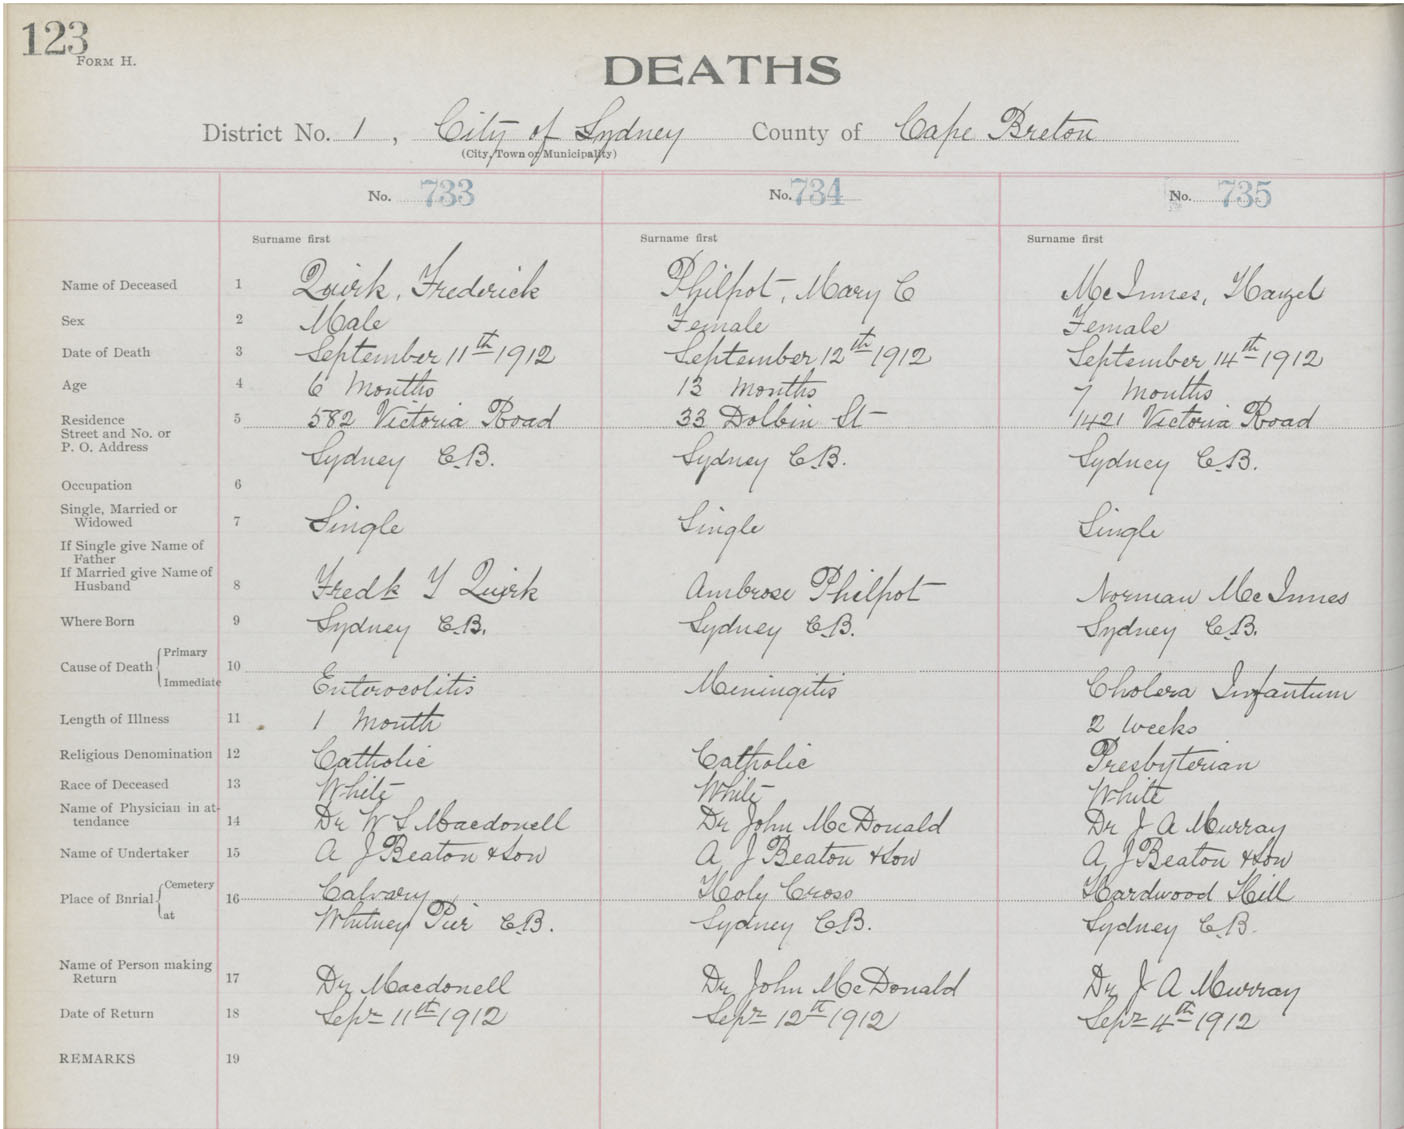 123
FORM H.
DEATHS
District No. 1, City of Sydney County of Cape Breton
(City, Town or Municipality)
No. 733 No. 734 No. 735
Surname first Surname first Surname first
Name of Deceased 1 Quirk, Frederick Philpot, Mary C McInnes, Hazel
Sex 2 Male Female Female
Date of Death 3 September 11th 1912 September 12th 1912 September 14th 1912
Age 4 6 Months 13 months 7 months
Residence
Street and No. or 5 582 Victoria Road 33 Dolbin St 1421 Victoria Road
P. O. Address
Sydney C.B. Sydney C.B. Sydney C.B.
Occupation 6
Single, Married or
Widowed 7 Single Single Single
If Single give Name of
Father
If Married give Name of
Husband 8 Fredk Y Quirk Ambrose Philpot Norman McInnes
Where Born 9 Sydney C.B. Sydney C.B. Sydney C.B.
Primary
Cause of Death 10
Immediate Enterocolitis Meningitis Cholera Infantum
Length of Illness 11 1 Month 2 weeks
Religious Denomination 12 Catholic Catholic Presbyterian
Race of Deceased 13 White White White
Name of Physician in at-
tendance 14 Dr W S Macdonell Dr John McDonald Dr J A Murray
Name of Undertaker 15 A J Beaton & Son A J Beaton & Son A J Beaton & Son
Cemetery Calvary Holy Cross Hardwood Hill
Place of Burial 16
at Whitney Pier C.B. Sydney C.B. Sydney C.B.
Name of Person making
Return 17 Dr Macdonell Dr John McDonald Dr J A Murray
Date of Return 18 Sepr 11th 1912 Sepr 12th 1912 Sepr 4th 1912
REMARKS 19